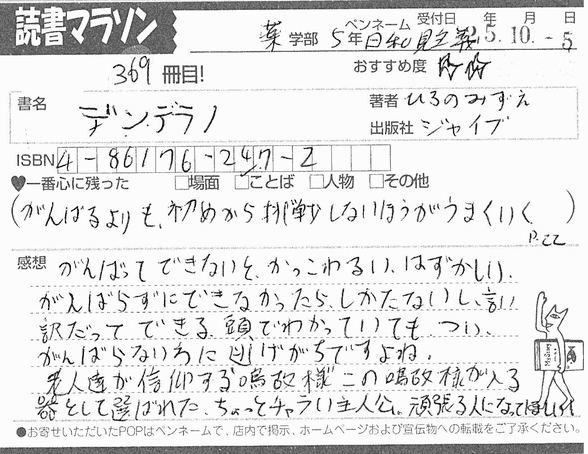 読書マラソン
薬学部 5年 ペンネーム 日和見主義 受付日 15年10月-5日
369冊目! おすすめ度
書名 デンデラノ 著者 ひろのみずえ
出版社 ジャイブ
ISBN 4-86176-247-2
♥一番心に残った □場面 □ことば □人物 □その他
(がんばるよりも、初めから挑戦しないほうがうまくいく)
P.22
感想 がんばってできないと、かっこわるい、はずかしい。
がんばらずにできなかったら、しかたないし、言い
訳だってできる、頭でわかっていても、つい、
がんばらないほうに逃げがちですよね。
老人達が信仰する"嗚呼様"この嗚呼様が入る
器として選ばれた、ちょっとチャラい主人公。頑張る人になってほしい
●お寄せいただいたPOPはペンネームで、店内で掲示、ホームページおよび宣伝物への転載をご了承ください。